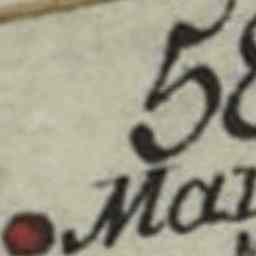 58
Mar